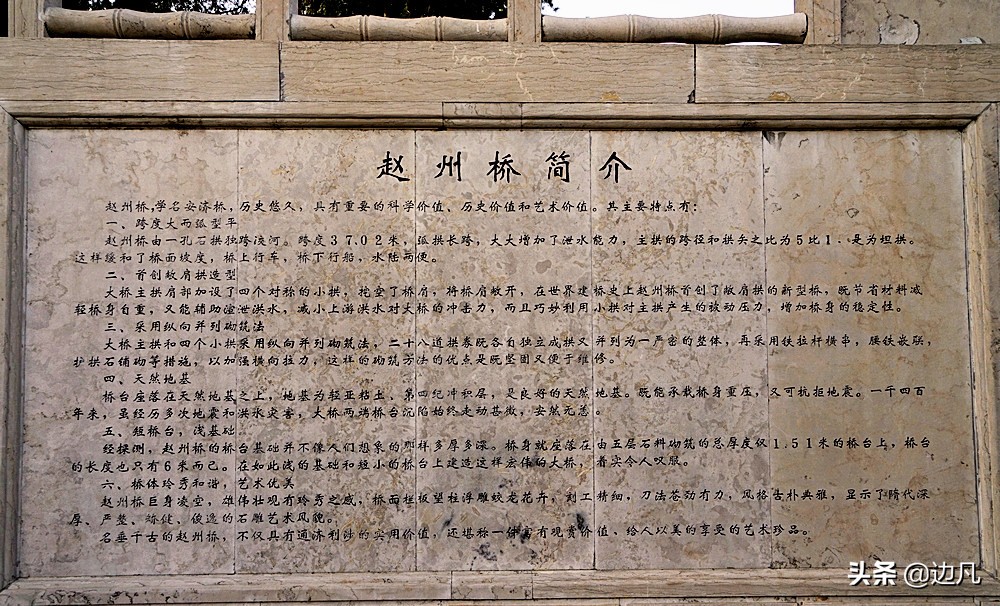 赵州桥简介
赵州桥,学名安济桥,历史悠久,具有重要的科学价值、历史价值和艺术价值。其主要特点有:
一、跨度大而弧型平
赵州桥由一孔石拱独跨洨河。跨度37.02米,弧拱长跨,大大增加了泄水能力,主拱的跨径和拱矢之比为5比1、是为坦拱。
这样缓和了桥面坡度,桥上行车,桥下行船,水陆两便。
二、首创敞肩拱造型
大桥主拱肩部加设了四个对称的小拱,挖空了桥肩,将桥肩敞开,在世界建桥史上赵州桥首创了敞肩拱的新型桥。既节省材料减
轻桥身自重,又能辅助渲泄洪水,减小上游洪水对大桥的冲击力,而且巧妙利用小拱对主拱产生的被动压力,增加桥身的稳定性。
三、采用纵向并列砌筑法
大桥主拱和四个小拱采用纵向并列砌筑法,二十八道拱券既各自独立成拱又并列为一严密的整体,再采用铁拉杆横串,腰铁嵌联,
护拱石铺砌等措施,以加强横向拉力,这样的砌筑方法的优点是既坚固又便于维修。
四、天然地基
桥台座落在天然地基之上,地基为轻亚粘土、第四纪冲积层,是良好的天然地基。既能承载桥身重压,又可抗拒地震。一千四百
年来,虽经历多次地震和洪水灾害,大桥两端桥台沉陷始终走动甚微,安然无恙。
五、短桥台,浅基础
经探测,赵州桥的桥台基础并不像人们想象的那样多厚多深。桥身就座落在由五层石料砌筑的总厚度仅1.51米的桥台上,桥台
的长度也只有6米而已。在如此浅的基础和短小的桥台上建造这样宏伟的大桥,着实令人叹服。
六、桥体玲秀和谐,艺术优美
赵州桥巨身凌空,雄伟壮观有玲秀之感,桥面栏板望柱浮雕蛟龙花卉,刻工精细,刀法苍劲有力,风格古朴典雅,显示了隋代深
厚、严整、矫健、俊逸的石雕艺术风貌。
名垂千古的赵州桥,不仅具有通济利涉的实用价值,还堪称一件富有观赏价值、给人以美的享受的艺术珍品。
头条 @边凡